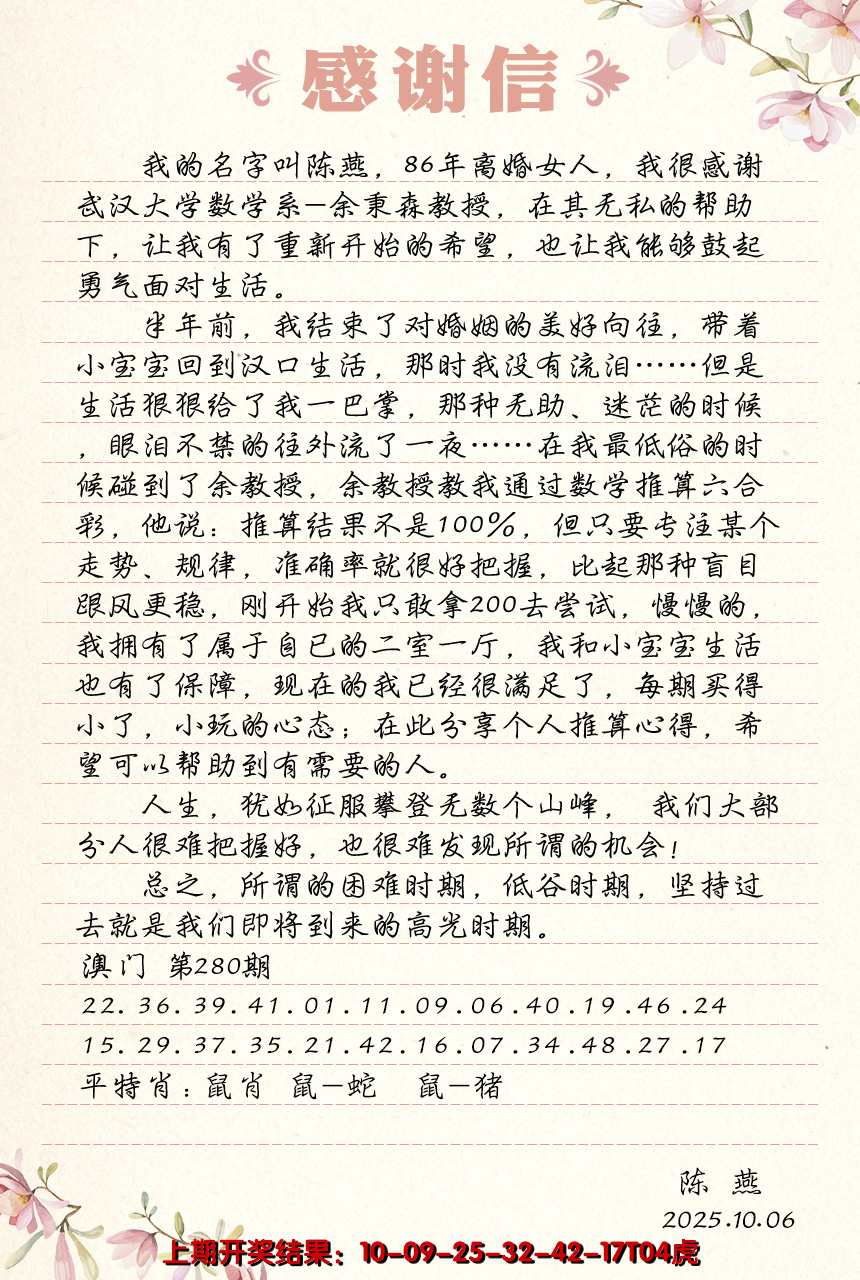 感谢信
我的名字叫陈燕，86年离婚女人，我很感谢
武汉大学数学系—余秉森教授，在其无私的帮助
下，让我有了重新开始的希望，也让我能够鼓起
勇气面对生活。
半年前，我结束了对婚姻的美好向往，带着
小宝宝回到汉口生活，那时我没有流泪……但是
生活狠狠给了我一巴掌，那种无助、迷茫的时候
，眼泪不禁的往外流了一夜……在我最低俗的时
候碰到了余教授，余教授教我通过数学推算六合
彩，他说：推算结果不是100%，但只要专注某个
走势、规律，准确率就很好把握，比起那种盲目
跟风更稳，刚开始我只敢拿200去尝试，慢慢的，
我拥有了属于自已的二室一厅，我和小宝宝生活
也有了保障，现在的我已经很满足了，每期买得
小了，小玩的心态；在此分享个人推算心得，希
望可以帮助到有需要的人。
人生，犹如征服攀登无数个山峰， 我们大部
分人很难把握好，也很难发现所谓的机会！
总之，所谓的困难时期，低谷时期，坚持过
去就是我们即将到来的高光时期。
澳门 第280期
22.36.39.41.01.11.09.06.40.19.46.24
15.29.37.35.21.42.16.07.34.48.27.17
平特肖：鼠肖 鼠—蛇 鼠—猪
陈 燕
2025.10.06
上期开奖结果：10-09-25-32-42-17T04虎